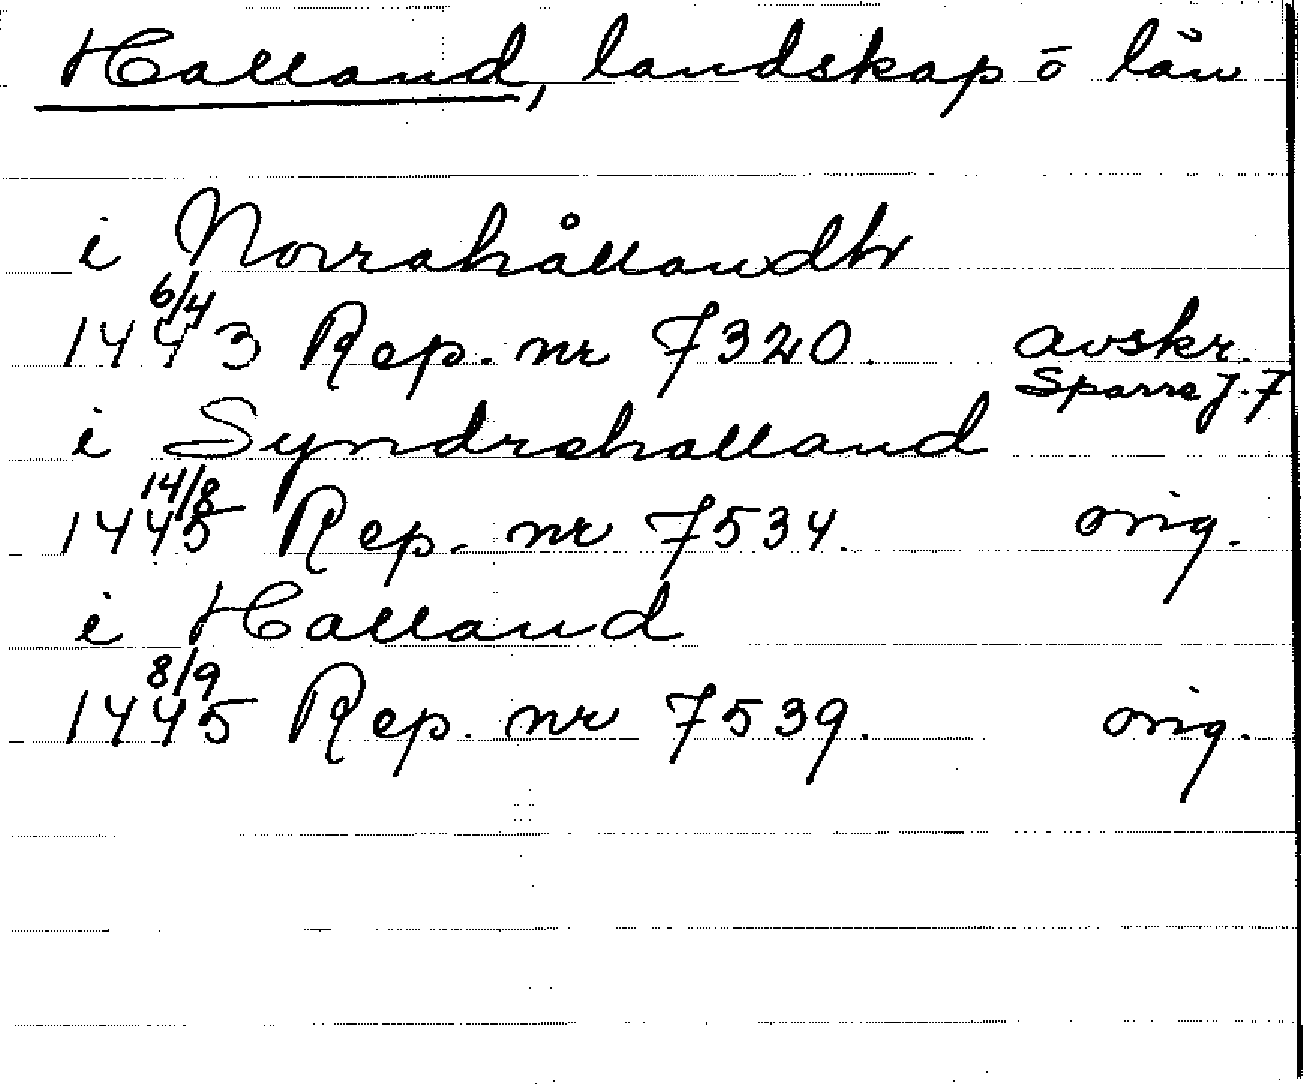 Halland, landskap o län
i Norrahållandh
1443 6/4 Rep. nr 7320. avskr.
Sparre J. F
i Syndrehalland
1445 14/8 Rep. nr 7534. orig.
i Halland
1445 8/9 Rep. nr 7539. orig.